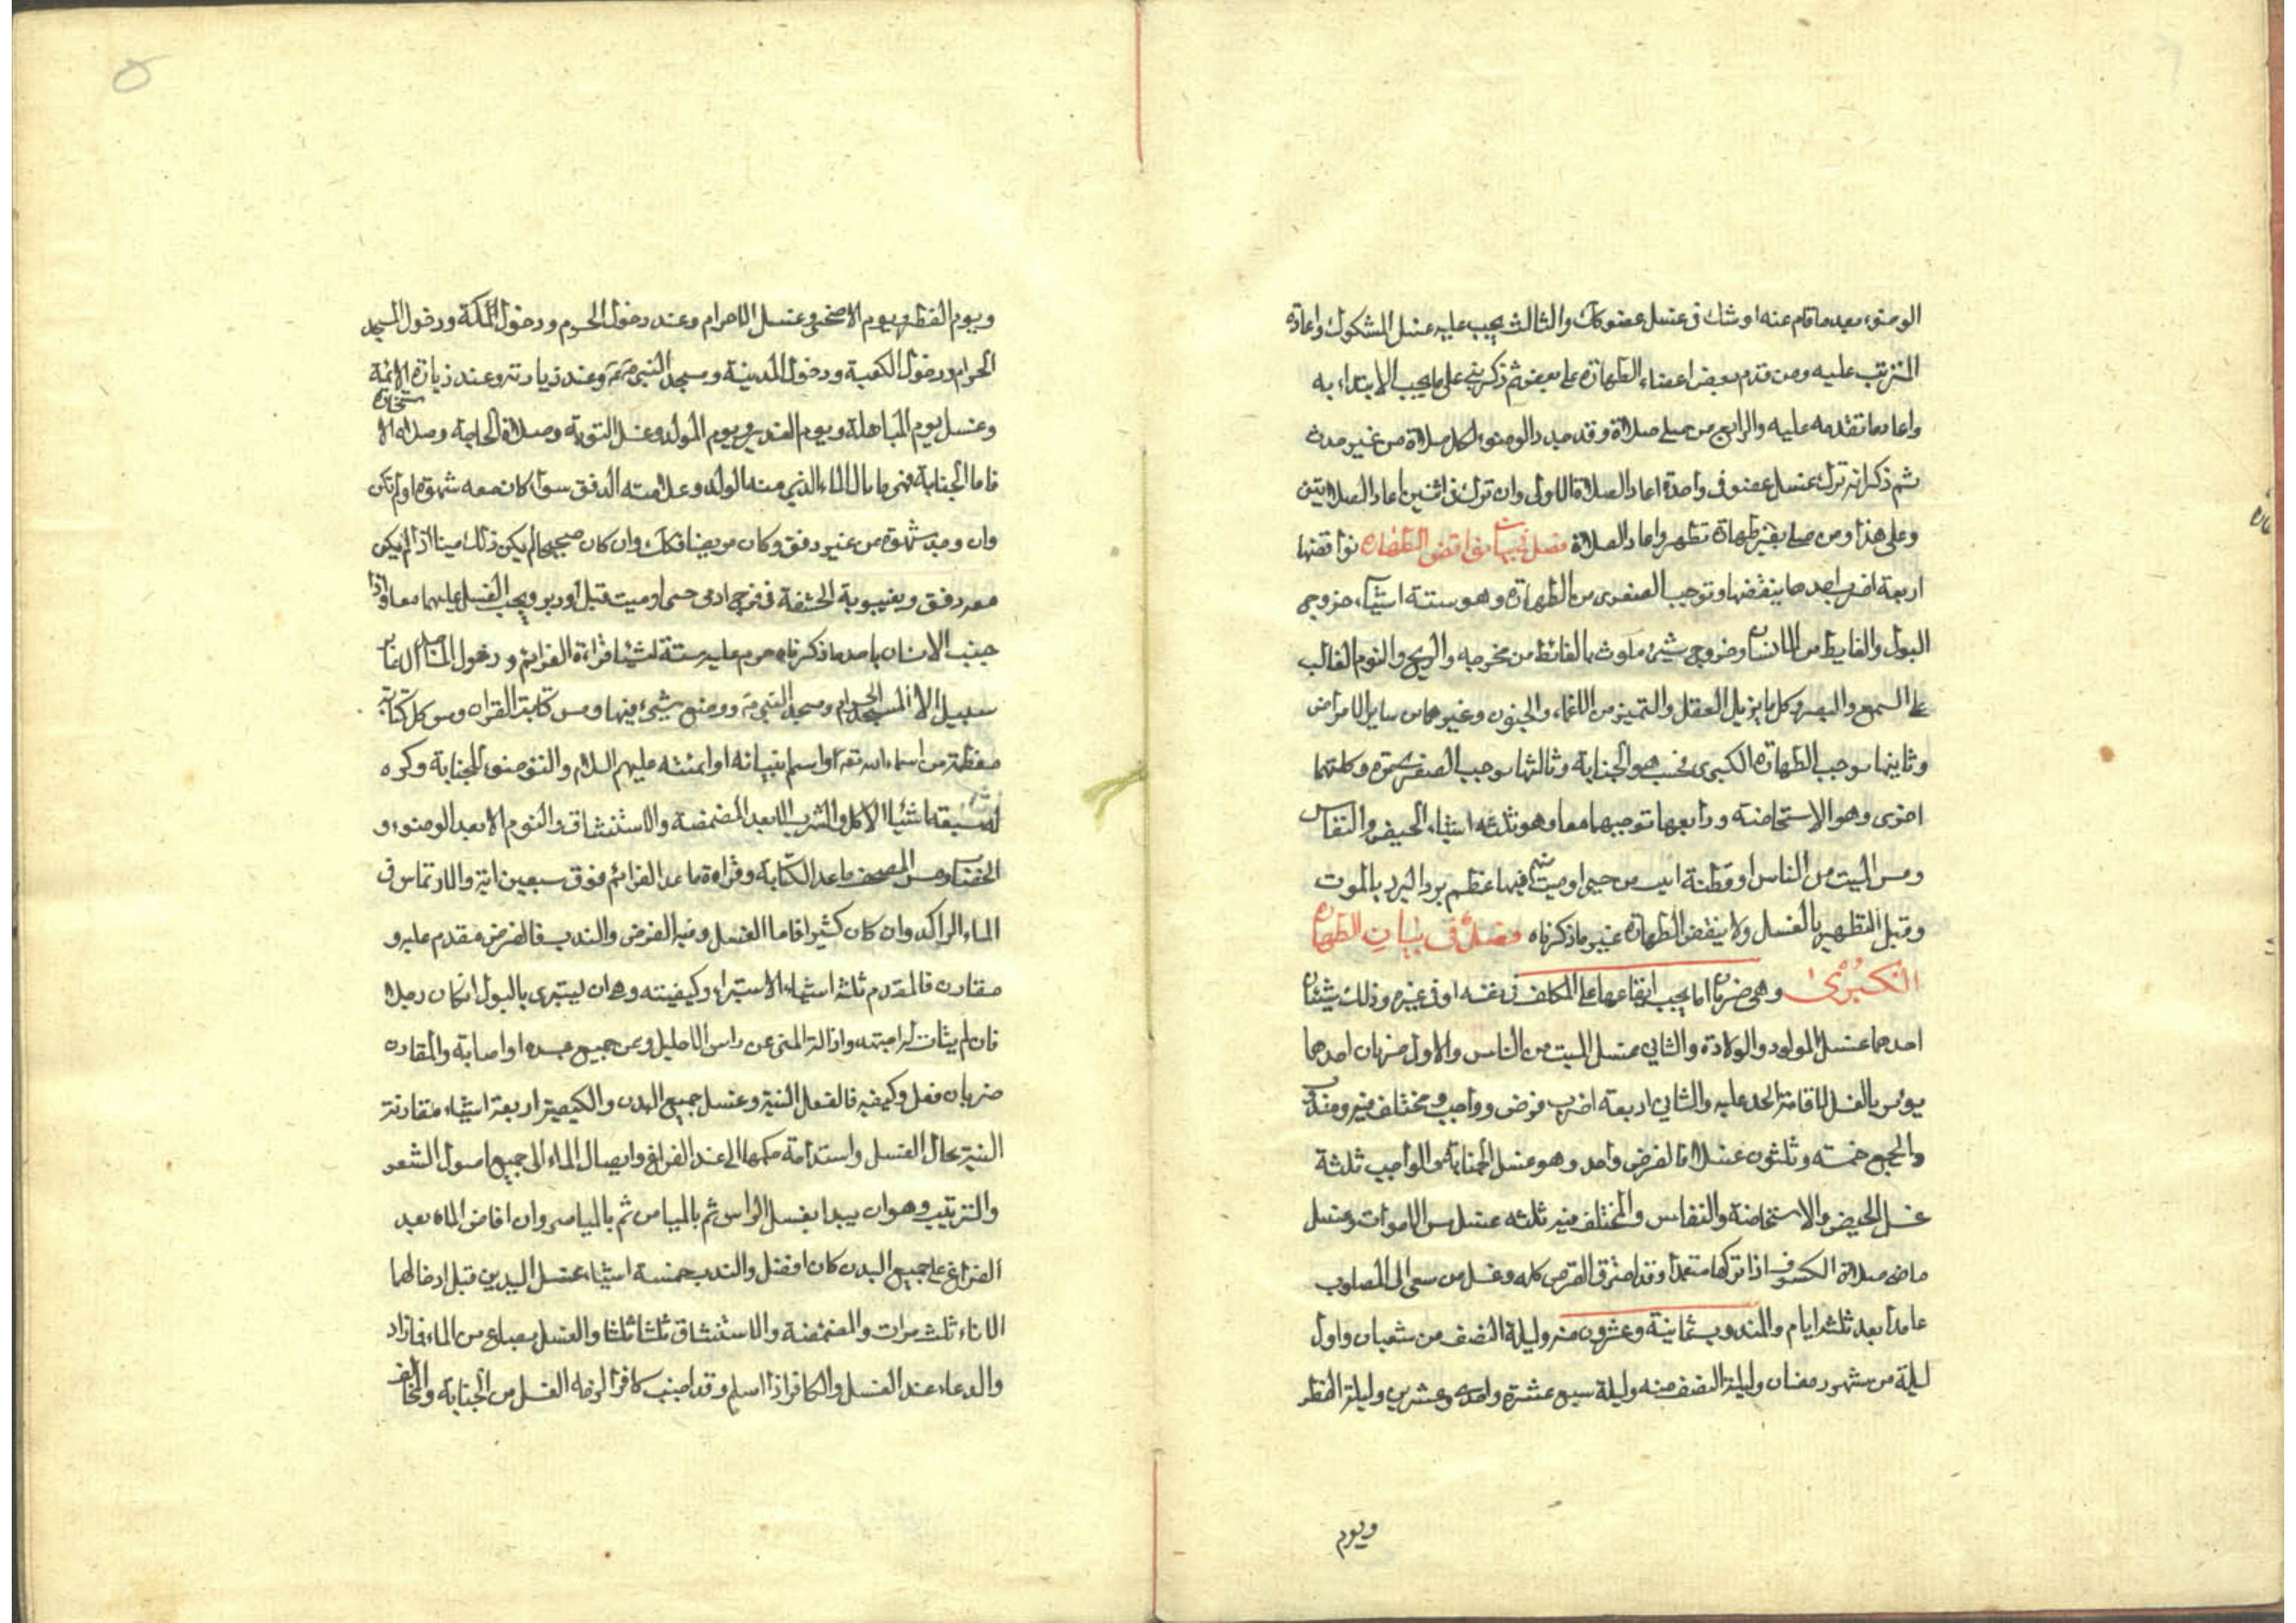 الوضوء بعد ما قام عنه او شك فى غسل عضو كك والثالث يجب عليه غسل المشكوك واعادة
الترتب عليه ومن قدم بعض اعضاء الطهارة على بعض ثم ذكر بنى على ما يجب الابتداء به
واعاد ما تقدمه عليه والرابع من صلى صلاة وقد جدد الوضوء لكل صلاة من غير حدث
ثم ذكر انه ترك غسل عضو فى واحدة اعاد الصلاة الاولى وان ترك فى اثنين اعاد الصلاتين
وعلى هذا ومن صلى بغير طهارة تطهر واعاد الصلاة فصل فى بيان نواقض الطهارة نواقضها
اربعة اضرب احدها ينقضها وتوجب الصغرى من الطهارة وهو ستة اشياء خروج
البول والغايط من الانسان وخروج شيئ ملوث بالغائط من مخرجه والريح والنوم الغالب
على السمع والبصر وكل ما يزيل العقل والتميز من الاغماء والجنون وغيرهما من ساير الامراض
وثانيها يوجب الطهارة الكبرى فحسب هو الجنابة وثالثها يوجب الصغرى مرة وكلتهما
اخرى وهو الاستحاضة ورابعها توجبهما معا وهو ثلثه اشياء الحيض والنفاس
ومس الميت من الناس او قطعة ابين من حيى او ميت فيها عظم بعد البرد بالموت
وقبل التطهير بالغسل ولا ينقض الطهارة غير ما ذكرناه فصل فى بيان الطهارة
الكبرى وهى ضربان اما يجب ايقاعها على المكلف فى نفسه او فى غيره وذلك شيئان
احدهما غسل المولود والولادة والثانى غسل الميت من الناس والاول ضربان احدهما
يؤمر بالغسل لاقامة الحد عليه والثانى اربعة اضرب فرض وواجب ومختلف فيه ومندوب
والجميع خمسة وثلثون غسلا فالفرض واحد وهو غسل الجنابة والواجب ثلثة
غسل الحيض والاستحاضة والنفاس والمختلف فيه ثلثه غسل مس الاموات وغسل
قاضى صلاة الكسوف اذا تركها متعمدا وقد احترق القرص كله وغسل من سعى الى المصلوب
عامدا بعد ثلثه ايام والمندوب ثمانية وعشرون منه وليلة النصف من شعبان واول
ليلة من شهر رمضان وليلة النصف منه وليلة سبع عشرة واحدى وعشرين وليلة الفطر
ويوم
ويوم الفطر ويوم الاضحى وغسل الاحرام وعند دخول الحرم ودخول المكة ودخول المسجد
الحرام ودخول الكعبة ودخول المدينة ومسجد النبى وعند زيارته وعند زيارة الائمة
وغسل يوم المباهلة ويوم الغدير ويوم المولد وغسل التوبة وصلاة الحاجة وصلاة الاستخارة
فاما الجنابة فهى بانزال الماء الذى منه الولد وعلامته الدفق سواء كان معه شهوة او لم تكن
وان وجد شهوة من غير دفق وكان مريضا فكك وان كان صحيحا لم يكن ذلك منيا اذا لم يكن
معه دفق وبغيبوبة الحشفة فى فرج ادمى حى او ميت قبل او دبر ويجب الغسل عليهما معا واذا
جنب الانسان باحد ما ذكرناه حرم عليه ستة اشياء قراءة العزائم ودخول المساجد الا عابر
سبيل الا المسجد الحرام ومسجد النبى ووضع شيئ فيها ومس كتابة القران ومس كل كتابة
معظمة من اسماء الله تعـ او اسماء انبيائه او ائمته عليهم السلام والتوضؤ للجنابة وكره
له سبعة اشياء الاكل والشرب الا بعد المضمضة والاستنشاق والنوم الا بعد الوضوء و
الخضاب ومس المصحف ما عدا الكتابة وقراءة ما عدا العزائم فوق سبعين اية والارتماس فى
الماء الراكد وان كان كثيرا فاما الغسل وفيه الفرض والندب فالفرض مقدم عليه و
مقارن فالمقدم ثلثه اشياء الاستبراء وكيفيته وهو ان يستبرى بالبول ان كان رجلا
فان لم يتات له اجتهد وازالة المنى عن راس الاحليل وعن جميع جسده ان اصابه والمقارن
ضربان فعل وكيفيه فالفعل النية وغسل جميع البدن والكيفية اربعة اشياء مقارنة
النية بحال الغسل واستدامة حكمها الى عند الفراغ وايصال الماء الى جميع اصول الشعر
والترتيب وهو ان يبدا بغسل الراس ثم بالميامن ثم بالمياسر وان افاض الماء بعد
الفراغ على جميع البدن كان افضل والندب خمسة اشياء غسل اليدين قبل ادخالهما
الاناء ثلث مرات والمضمضة والاستنشاق ثلثا ثلثا والغسل بصاع من الماء فما زاد
والدعاء عند الغسل والكافر اذا اسلم وقد اجنب كافرا لزمه الغسل من الجنابة والمخالف